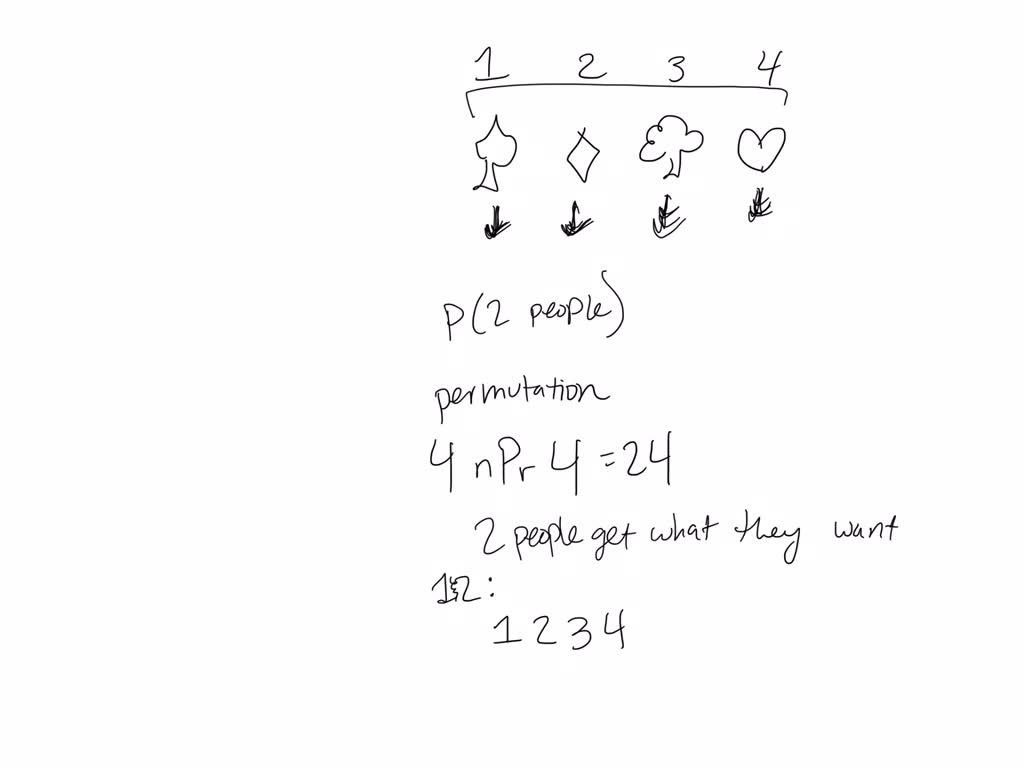 1 2 3 4
P(2 people)
permutation
4 nPr 4 = 24
2 people get what they want
1&2:
1 2 3 4